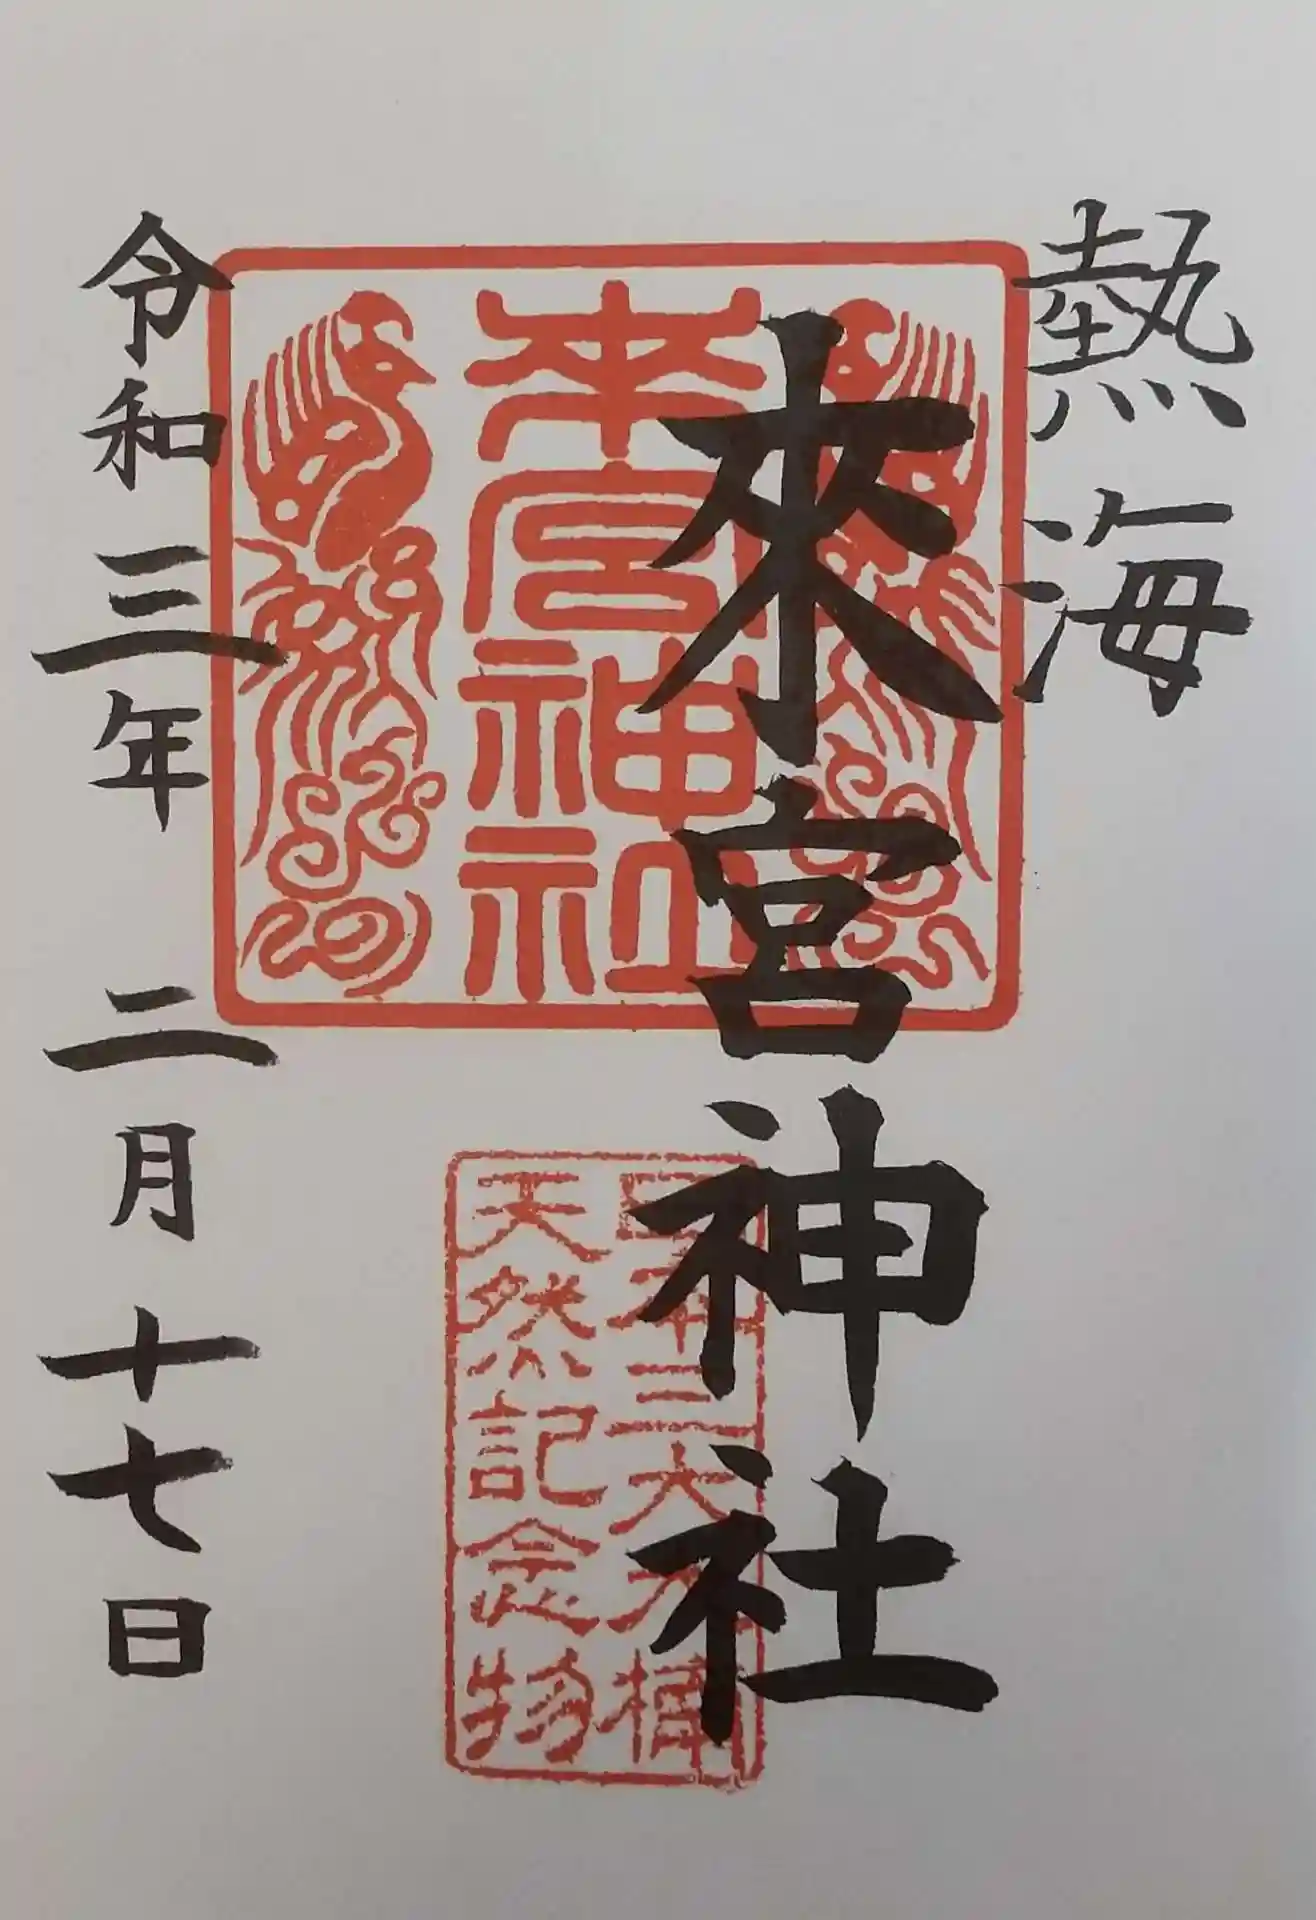 熱海
來宮神社
来宮神社
日本三大大楠
天然記念物
令和三年 二月十七日